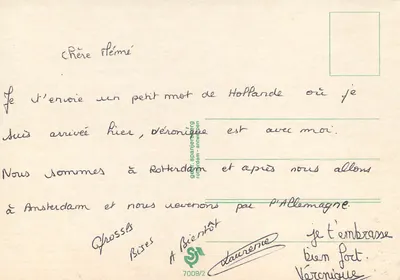 Chère Mémé
Je t'envoie un petit mot de Hollande où je
suis arrivée hier, Véronique est avec moi.
Nous sommes à Rotterdam et après nous allons
à Amsterdam et nous revenons par l'Allemagne.
Grosses
Bises
A Bientôt
Laurence
je t'embrasse
bien fort.
Véronique
7008/2